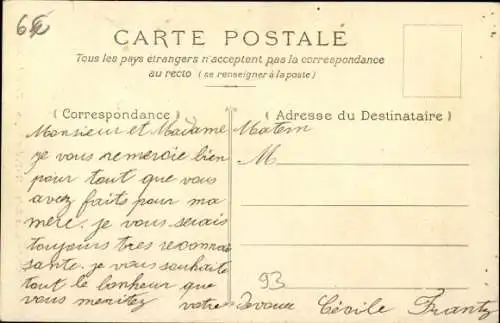 6
CARTE POSTALE
Tous les pays étrangers n'acceptent pas la correspondance
au recto (se renseigner à la poste)
(Correspondance)
(Adresse du Destinataire)
Monsieur et Madame Matern
je vous remercie bien
pour tout que vous
avez faits pour ma
mère. je vous serais
toujours tres reconnais
sante. je vous souhaite
tout le bonheur que
vous meritez votre Cécile Frantz
M
93